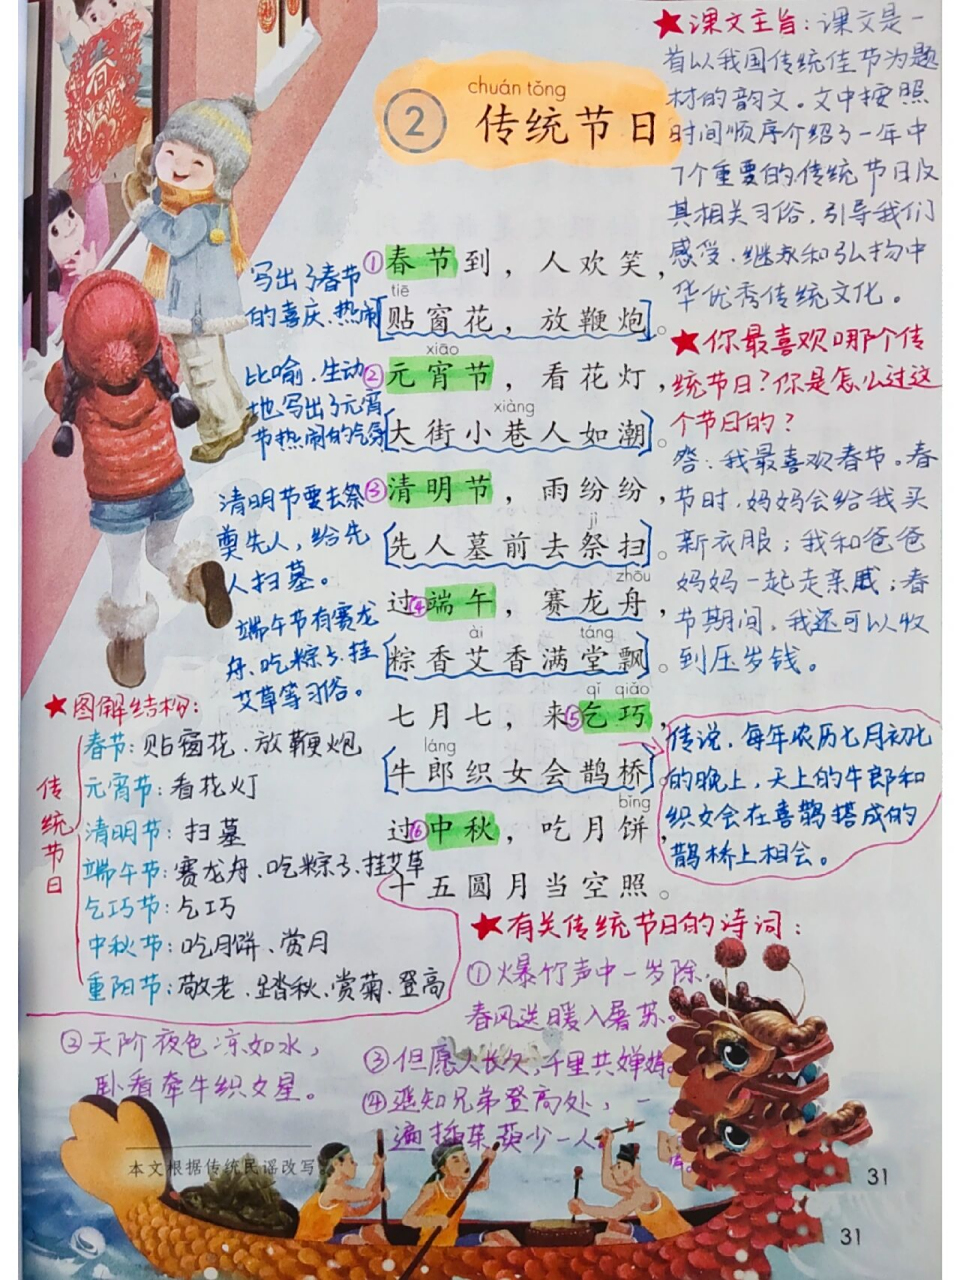 chuán tǒng
2 传统节日
★课文主旨：课文是一
首以我国传统佳节为题
材的韵文。文中按照
时间顺序介绍了一年中
7个重要的传统节日及
其相关习俗，引导我们
感受、继承和弘扬中
华优秀传统文化。
春
写出了春节
的喜庆、热闹
①春节到，人欢笑，
tiē
贴窗花，放鞭炮。
比喻、生动
地写出了元宵
节热闹的气氛
xiāo
②元宵节，看花灯，
xiàng
大街小巷人如潮。
清明节要去祭
奠先人，给先
人扫墓。
③清明节，雨纷纷，
jì
先人墓前去祭扫。
端午节有赛龙
舟、吃粽子、挂
艾草等习俗。
zhōu
过④端午，赛龙舟，
ài táng
粽香艾香满堂飘。
qǐ qiǎo
七月七，来⑤乞巧，
láng
牛郎织女会鹊桥。
bǐng
过⑥中秋，吃月饼，
十五圆月当空照。
★你最喜欢哪个传
统节日？你是怎么过这
个节日的？
答：我最喜欢春节。春
节时，妈妈会给我买
新衣服；我和爸爸
妈妈一起走亲戚；春
节期间，我还可以收
到压岁钱。
传说，每年农历七月初七
的晚上，天上的牛郎和
织女会在喜鹊搭成的
鹊桥上相会。
★图解结构：
传统节日
春节：贴窗花、放鞭炮
元宵节：看花灯
清明节：扫墓
端午节：赛龙舟、吃粽子、挂艾草
乞巧节：乞巧
中秋节：吃月饼、赏月
重阳节：敬老、踏秋、赏菊、登高
★有关传统节日的诗词：
①爆竹声中一岁除，
春风送暖入屠苏。
②天阶夜色凉如水，
卧看牵牛织女星。
③但愿人长久，千里共婵娟。
④遥知兄弟登高处，
遍插茱萸少一人。
本文根据传统民谣改写
31
31